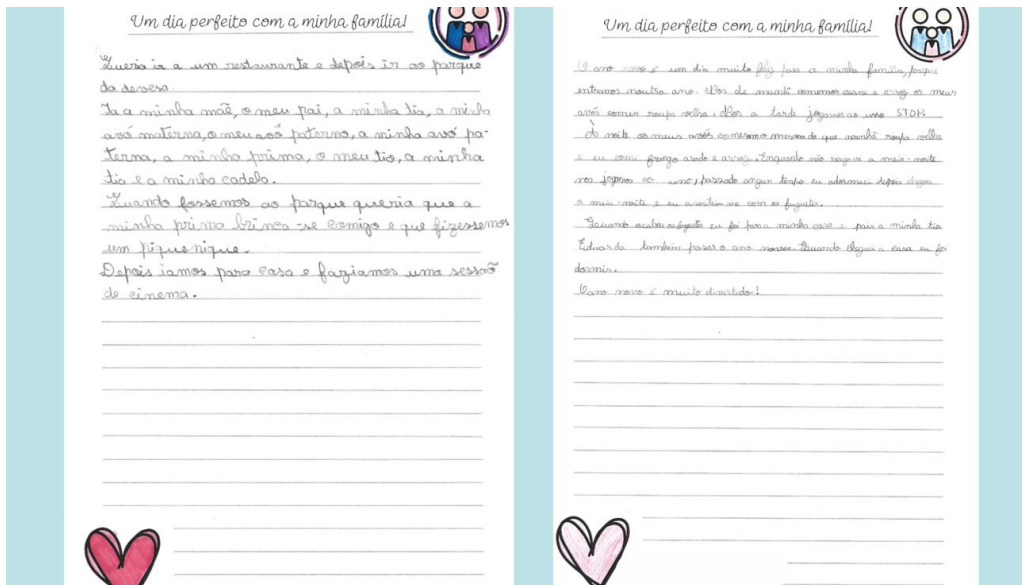 Um dia perfeito com a minha família!
Queria ir a um restaurante e depois ir ao parque
da devesa.
Ia a minha mãe, o meu pai, a minha tia, a minha
avó materna, o meu avô paterno, a minha avó pa-
terna, a minha prima, o meu tio, a minha
tia e a minha cadela.
Quando fossemos ao parque queria que a
minha prima brinca-se comigo e que fizessemos
um piquenique.
Depois iamos para casa e faziamos uma sessão
de cinema.
Um dia perfeito com a minha família!
O ano novo é um dia muito feliz para a minha família, porque
entramos noutro ano. de manhã comemos carne e arroz os meus
avós comem roupa velha. a tarde jogamos ao uno STOP.
À noite os meus avós comem o mesmo do que manhã roupa velha
e eu comi frango assado e arroz. Enquanto não a meia-noite
nos jogamos ao uno, passado algun tempo eu adormeci depois chegou
a meia-noite e eu me com os foguetes.
Quando acabou eu fui para a minha casa e para a minha tia
Eduarda também passar o ano novo. Quando cheguei a casa eu fui
dormir.
O ano novo é muito divertido!